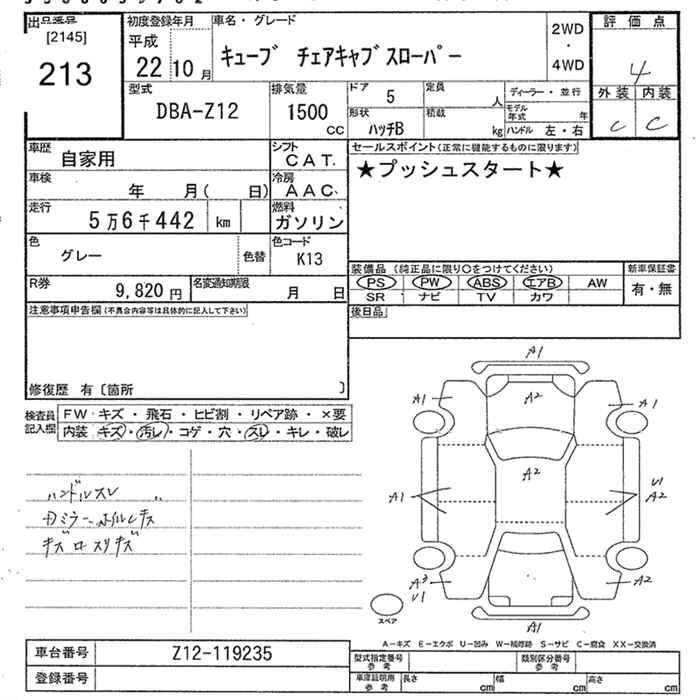 出品番号
[2145]
213
初度登録年月
平成
22 10 月
車名・グレード
キューブ チェアキャブスローパー
2WD
・
4WD
評価点
4
外装 内装
C C
型式
DBA-Z12
排気量
1500
CC
ドア 5
定員 人
形状
ハッチB
積載 kg
ディーラー・並行
モデル年式 年
ハンドル 左・右
車歴
自家用
シフト
CAT
車検
年 月( 日)
冷房
AAC
走行
5万6千442 km
燃料
ガソリン
色
グレー
色替
色コード
K13
R券
9,820 円
名変通知期限
月 日
セールスポイント(正常に機能するものに限ります)
★プッシュスタート★
装備品(純正品に限り○をつけてください)
PS PW ABS エアB AW
SR ナビ TV カワ
新車保証書
有・無
後日品
注意事項申告欄(不具合内容等は具体的に記入して下さい)
修復歴 有〔箇所 〕
検査員
記入欄
FW キズ・飛石・ヒビ割・リペア跡・×要
内装 キズ・汚レ・コゲ・穴・スレ・キレ・破レ
ハンドルスレ
A1
A2
A1
A1
A2
A1
U1
A2
A3
U1
A2
A1
スペア
A-キズ E-エクボ U-凹み W-補修跡 S-サビ C-腐食 XX-交換済
車台番号
Z12-119235
登録番号
型式指定番号
参考
類別区分番号
参考
車庫証明用
参考
長さ cm
幅 cm
高さ cm